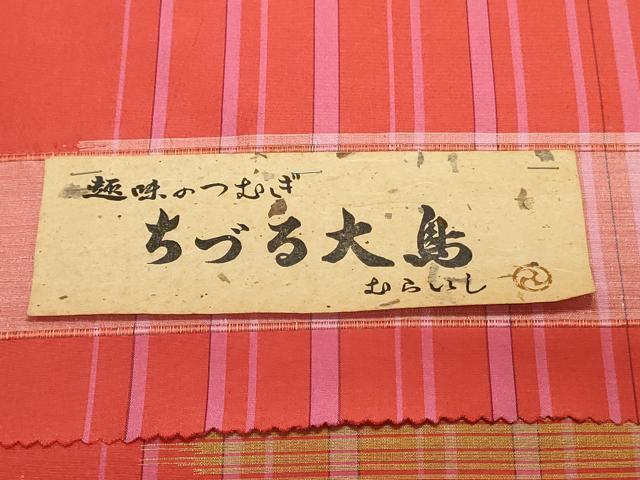 趣味のつむぎ
ちづる大島
むらいし